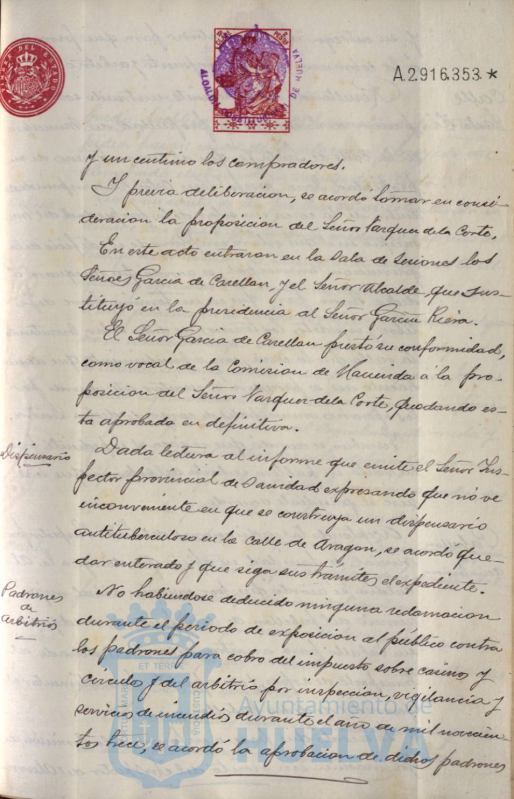 A.2.916.353.*
ALCALDIA CONSTITUCIONAL DE HUELVA
y un centimo los compradores.
Y previa deliberacion, se acordó tomar en consi-
deracion la proposicion del Señor Vazquez de la Corte.
En este acto entraron en la Sala de Sesiones los
Señores Garcia de Carellan, y el Señor Alcalde, que sus-
tituyó en la presidencia al Señor Garcia Riera.
El Señor Garcia de Carellan prestó su conformidad,
como vocal de la Comision de Hacienda á la pro-
posicion del Señor Vazquez de la Corte, quedando es-
ta aprobada en definitiva.
Dispensario
Dada lectura al informe que emite el Señor Ins-
pector provincial de Sanidad expresando que nó ve
inconveniente en que se construya un dispensario
antituberculoso en la calle de Aragon, se acordó que-
dar enterado y que siga sus trámites el expediente.
Padrones
de
arbitrios
No habiendose deducido ninguna reclamacion
durante el periodo de exposicion al público contra
los padrones para cobro del impuesto sobre casinos y
circulos y del arbitrio por inspeccion, vigilancia y
servicios de incendios durante el año de mil novecien-
tos trece, se acordó la aprobacion de dichos padrones
Ayuntamiento de
HUELVA